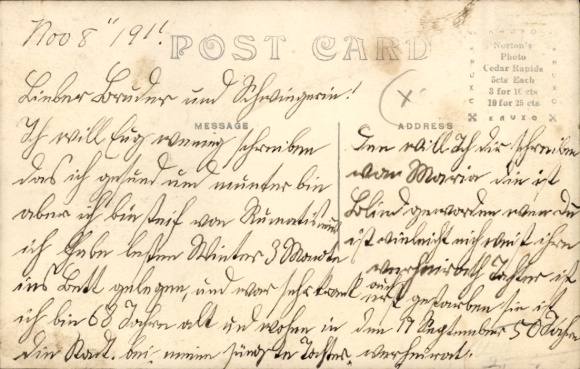 Nov 8" 1911.
POST CARD
Norton's
Photo
Cedar Rapids
5cts Each
3 for 10 cts
10 for 25 cts
KRUXO
Lieber Bruder und Schwigerin!
x
MESSAGE
ADDRESS
Ich will Eug wennig schreiben
das ich gesund und munter bin
aber ich bin steif von Rumatismus
ich habe lesten Winter 3 Monate
ins Bett gelegen, und war sehr krank
ich bin 68 Jahre alt und wohen in
die Stadt. bei meine jüngste Tochter.
Den will Ich dir schreiben
von Maria die ist
Blind geworden wen du
ist vieleicht nich weist ihre
verheirath Tochter ist
auch gestorben sie ist
den 17 September 50 Jahre
verheirat.